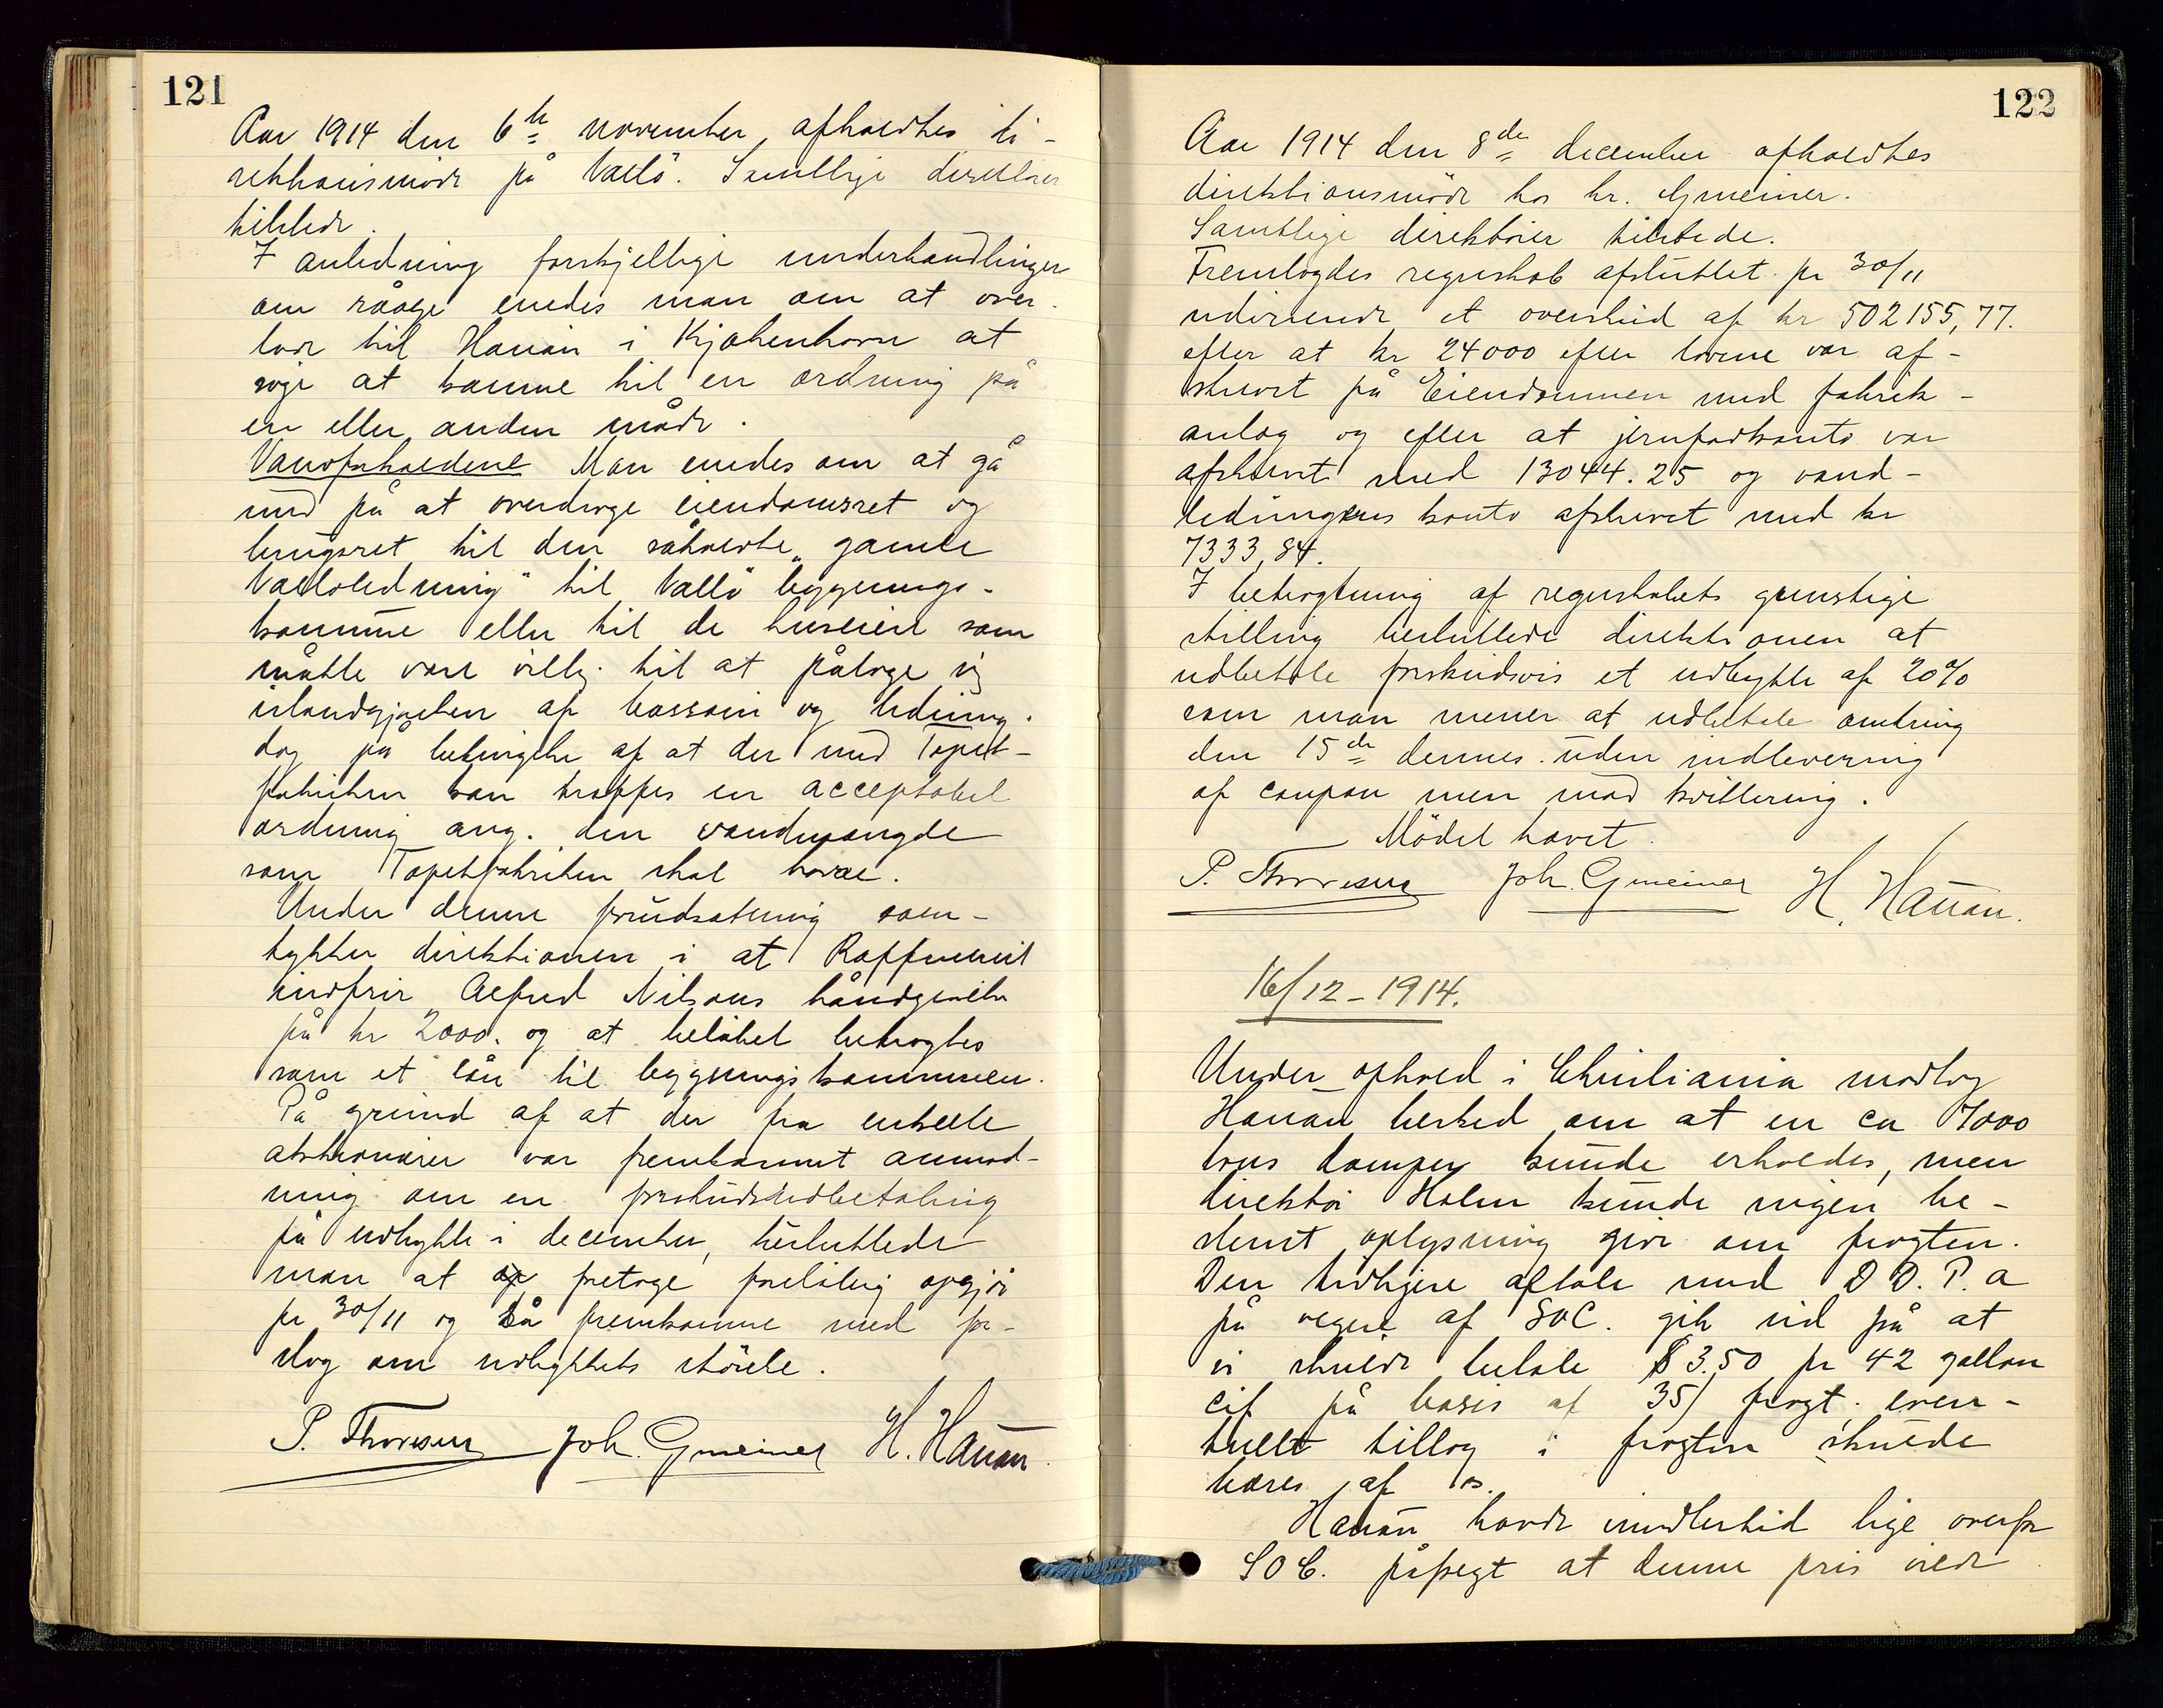 121
Aar 1914 den 6te november afholdtes di-
rektionsmöde på Vallö. Samtlige direktörer
tilstede.
I anledning forskjellige underhandlinger
om råolje enedes man om at over-
lade til Hauan i Kjøbenhavn at
søge at komme til en ordning på
en eller anden måde.
Vandforholdene Man enedes om at gå
med på at overdrage eiendomsret og
brugsret til den såkaldte „gamle
Valløledning" til Vallö bygnings-
kommune eller til de huseiere som
måtte være villig til at påtage sig
istandgjørelsen af bassain og ledning.
dog på betingelse af at der med Tapet-
fabriken kan træffes en acceptabel
ordning ang. den vandmængde
som Tapetfabriken skal have.
Under denne forudsætning sam-
tykker direktionen i at Raffineriet
indfrir Alfred Nilsens håndgivelse
på kr 2000. og at beløbet betragtes
som et lån til bygningskommunen.
På grund af at der fra enkelte
aktionærer var fremkommet anmod-
ning om en forskudsudbetaling
på udbytte i december, besluttede
man at foretage foreløbig opgjør
pr 30/11 og så fremkomme med for-
slag om udbyttets störrelse.
P. Thoresen Joh. Gmeiner H. Hauan.
122
Aar 1914 den 8de december afholdtes
direktionsmöde hos hr. Gmeiner.
Samtlige direktörer tilstede.
Fremlagdes regnskab afsluttet pr 30/11
udvisende et overskud af kr 502155,77.
efter at kr 24000 efter lovene var af-
skrevet på Eiendommen med fabrik-
anlæg og efter at jernfadkonto var
afskrevet med 13044.25 og vand-
ledningens konto afskrevet med kr
7333,84.
I betragtning af regnskabets gunstige
stilling besluttede direktionen at
udbetale forskudsvis et udbytte af 20%
som man mener at udbetale omkring
den 15de dennes uden indlevering
af coupon men mod kvittering.
Mödet hævet.
P. Thoresen Joh. Gmeiner H. Hauan.
16/12-1914.
Under ophold i Christiania modtog
Hauan besked om at en ca 7000
tons damper kunde erholdes, men
direktör Holm kunde ingen be-
stemt oplysning give om fragten.
Den tidligere aftale med D.D.P.A
på vegne af SOC. gik ud på at
vi skulde betale $ 3.50 pr 42 gallon
cif på basis af 35/ fragt. even-
tuelt tillæg i fragten skulde
bæres af os.
Hauan havde imidlertid lige overfor
SOC. påpegt at denne pris vilde